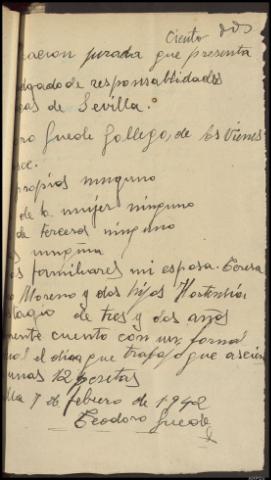 Ciento dos
racion jurada que presenta
lgado de responsablidades
cas de Sevilla.
ro Guede Gallego, de los vienes
ee.
propios ninguno
de la mujer ninguno
de terceros ninguno
s ninguna
as formiliares mi esposa. Teresa
o Moreno y dos hijos Hortensia
lagio de tres y dos años
mente cuento con un fornal
el dia que trafajo que a
unas 12 pesetas
lla 7 de febrero de 1942
Teodoro Guede